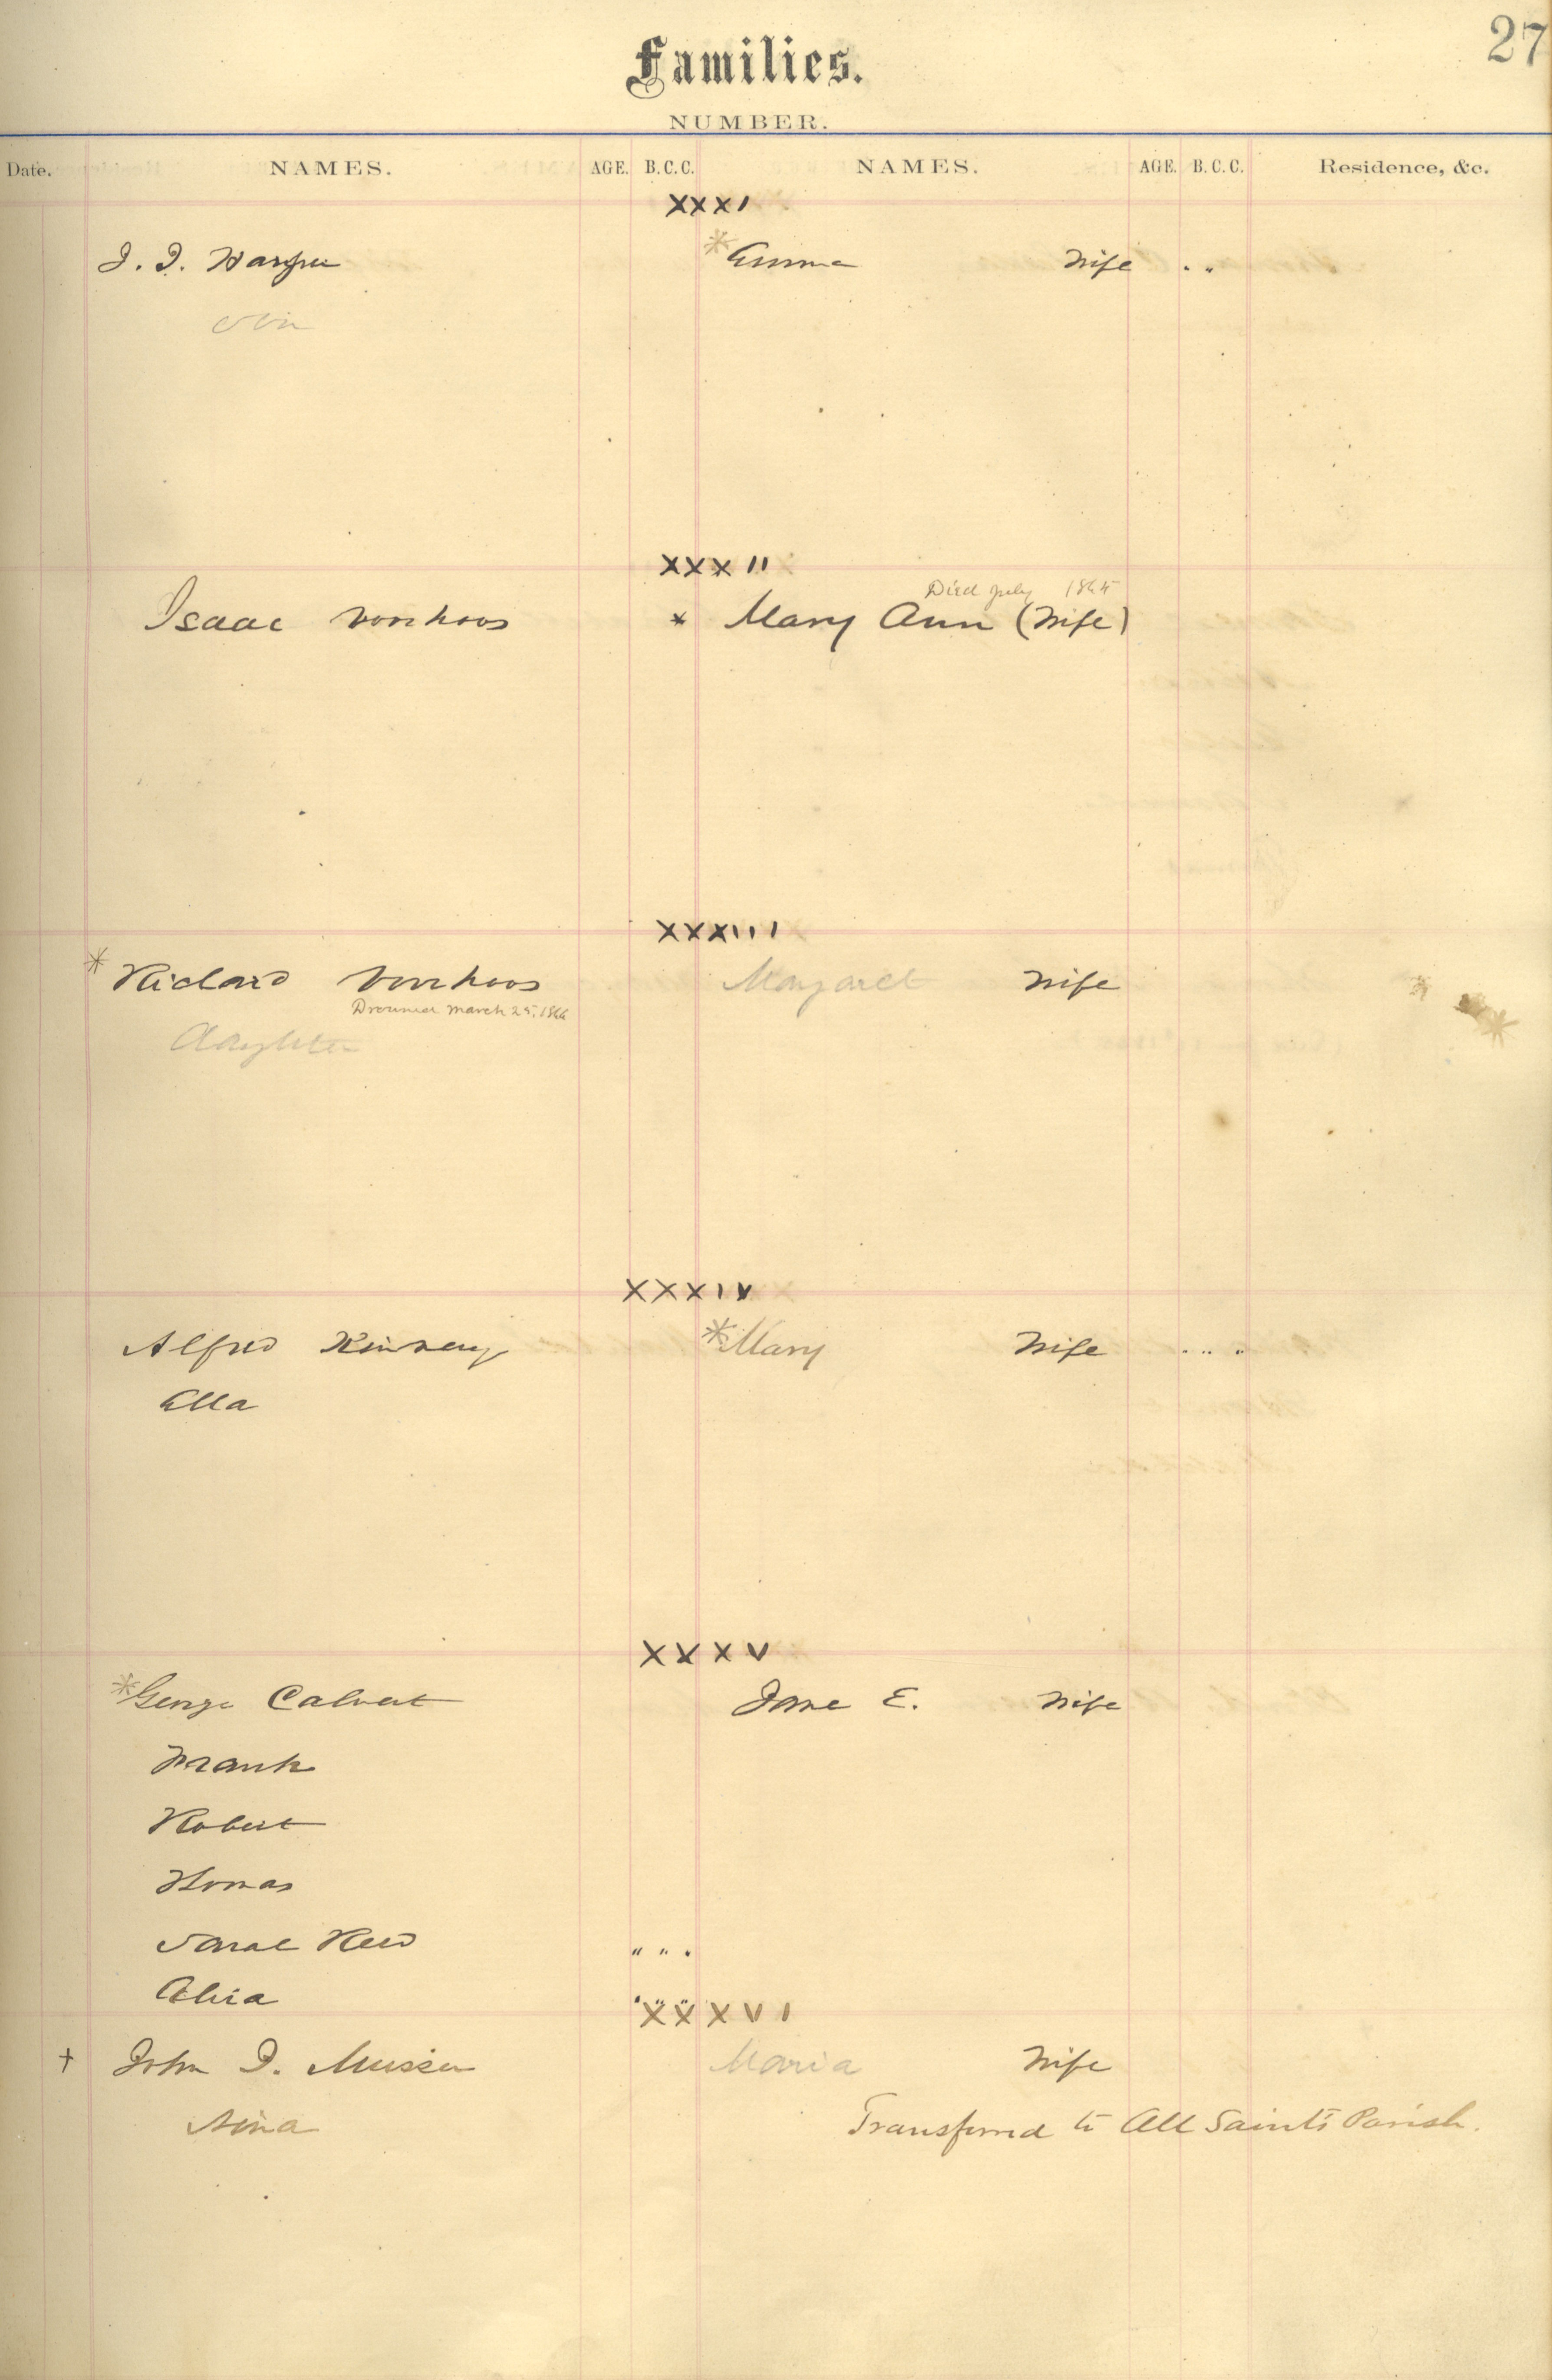 27
Families.
NUMBER.
Date. NAMES. AGE. B.C.C. NAMES. AGE. B.C.C. Residence, &c.
XXXI
J. J. Harper * Emma Wife . .
XXXII
Died July
Isaac Voorhoos * Mary Ann (Wife)
XXXIII
* Richard Voorhoos Margaret Wife
Drowned March 25, 1866
Daughter
XXXIV
Alfred Kinsey * Mary Wife . . .
Ella
XXXV
* George Calvert Jane E. Wife
Frank
Robert
Thomas
Sarah " " "
XXXVI
† John J. Musser Maria Wife
Nina Transferred to All Saints Parish.